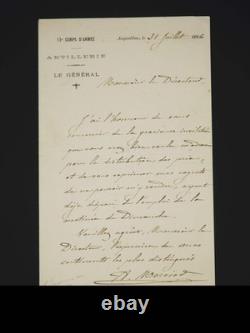 CORPS D'ARMÉE
ARTILLERIE
LE GÉNÉRAL
Angoulême, le 31 Juillet
Monsieur le Directeur,
J'ai l'honneur de vous
remercier de la gracieuse invitation
que vous avez bien voulu
pour la distribution des prix,
et de vous exprimer mes regrets
de ne pouvoir m'y rendre, ayant
déjà disposé de l'emploi de la
matinée de Dimanche.
Veuillez agréer, Monsieur le
Directeur, l'expression de mes
sentiments les plus distingués